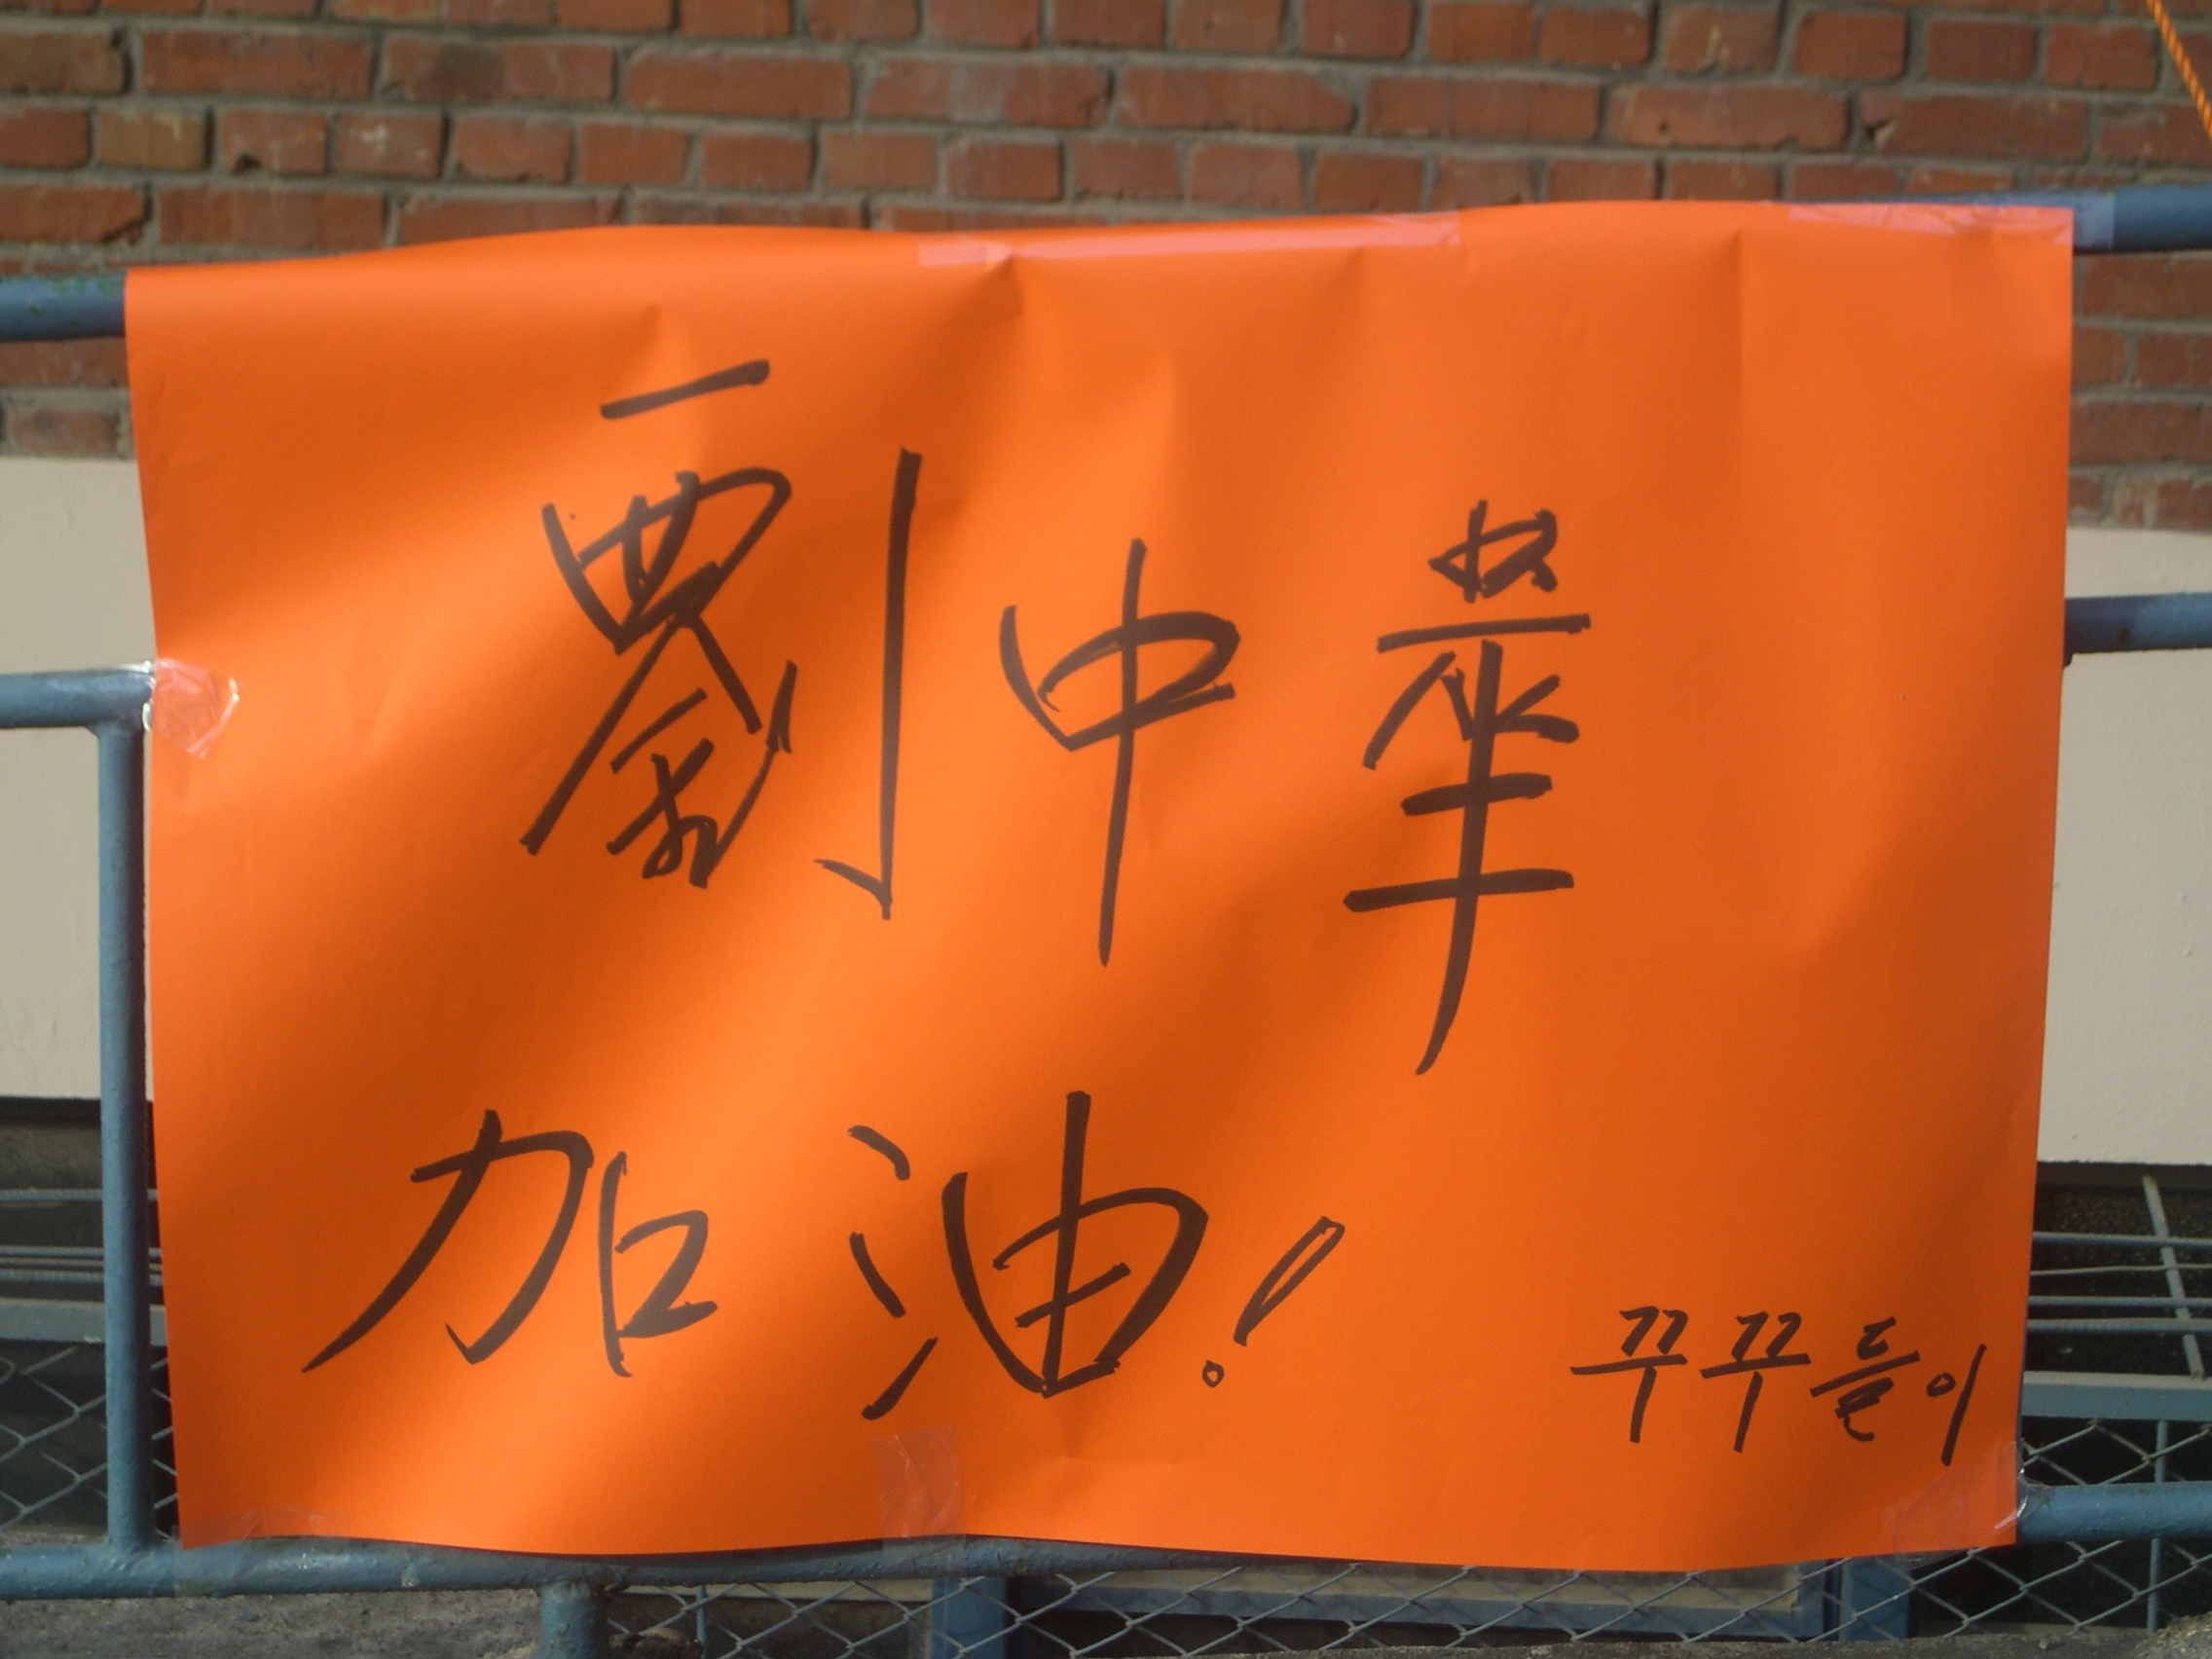 劉中華
加油!
꾸꾸들이